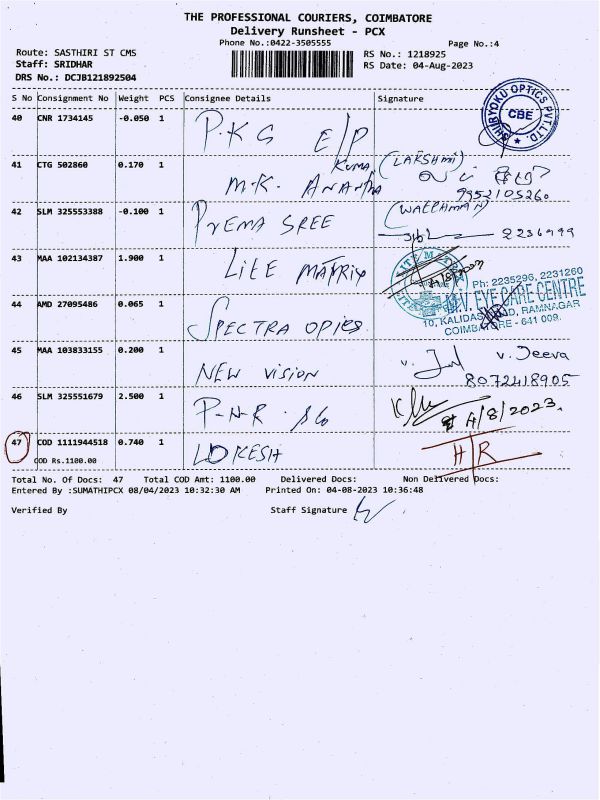 THE PROFESSIONAL COURIERS, COIMBATORE
Delivery Runsheet - PCX
Phone No.:0422-3505555
Page No.:4
Route: SASTHIRI ST CMS
Staff: SRIDHAR
DRS No.: DCJB121892504
RS No.: 1218925
RS Date: 04-Aug-2023
S No Consignment No Weight PCS Consignee Details Signature
40 CNR 1734145 -0.050 1 P.K G E/P
OPTICS PVT.LTD.
CBE
41 CTG 502860 0.170 1 M.K. ANANTHA KUMA (LAKSHMI)
9952105260
42 SLM 325553388 -0.100 1 PREMA SREE
2236999
43 MAA 102134387 1.900 1 LITE MATRIX
44 AMD 27095486 0.065 1 SPECTRA OPICS
Ph: 2235296, 2231260
M.V. EYE CARE CENTRE
10, KALIDAS ROAD, RAMNAGAR
COIMBATORE - 641 009.
45 MAA 103833155 0.200 1 NEW VISION
v. Jeeva
8072418905
46 SLM 325551679 2.500 1 P-N-R
4/8/2023.
47 COD 1111944518 0.740 1 LOKESH H/R
COD Rs.1100.00
Total No. Of Docs: 47 Total COD Amt: 1100.00 Delivered Docs: Non Delivered Docs:
Entered By :SUMATHIPCX 08/04/2023 10:32:30 AM Printed On: 04-08-2023 10:36:48
Verified By Staff Signature